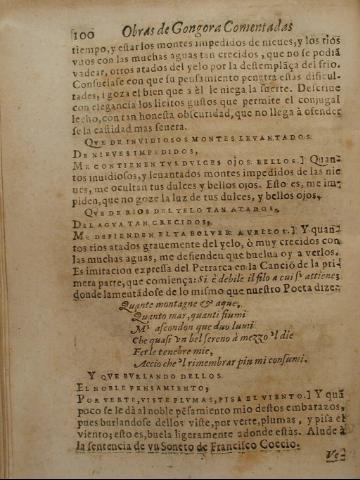 100 Obras de Gongora Comentadas
tiempo, y estar los montes impedidos de nieues, y los rios
vnos con las muchas aguas tan crecidos, que no se podiā
vadear, otros atados del yelo por la destemplāça del frio.
Consuelase con que su pensamiento penetra estas dificul-
tades, i goza el bien que a èl le niega la suerte. Describe
con elegancia los licitos gustos que permite el conjugal
lecho, con tan honesta obscuridad, que no llega à ofender
se la castidad mas seuera.
QVE DE INVIDIOSOS MONTES LEVANTADOS.
DE NIEVES IMPEDIDOS,
ME CONTIENEN TVS DVLCES OJOS BELLOS.] Quan
tos inuidiosos, y leuantados montes impedidos de las nie
ues, me ocultan tus dulces y bellos ojos. Esto es, me im-
piden, que no goze la luz de tus dulces, y bellos ojos.
QVE DE RIOS DEL YELO TAN ATADOS,
DEL AGVA TAN CRECIDOS,
ME DEFIENDEN EL YA BOLVER A VELLOS.] Y quan
tos rios atados grauemente del yelo, ò muy crecidos con
las muchas aguas, me defienden que buelua oy a verlos.
Es imitacion expressa del Petrarca en la Canciō de la pri
mera parte, que comiença: Si è debile il filo a cui s' attiene,
donde lamentādose de lo mismo que nuestro Poeta dize:
Quante montagne & aque,
Quanto mar, quanti fiumi
M' ascondon que duo lumi
Che quasi vn bel sereno à mezzo 'l die
Fer le tenebre mie,
Accio che 'l rimembrar piu mi consumi.
Y QVE BVRLANDO DELLOS.
EL NOBLE PENSAMIENTO,
POR VERTE, VISTE PLVMAS, PISA EL VIENTO.] Y quā
poco se le dà al noble pēsamiento mio destos embarazos,
pues burlandose dellos viste, por verte, plumas, y pisa el
viento; esto es, buela ligeramente adonde estàs. Alude à
la sentencia de vn Soneto de Francisco Coccio.